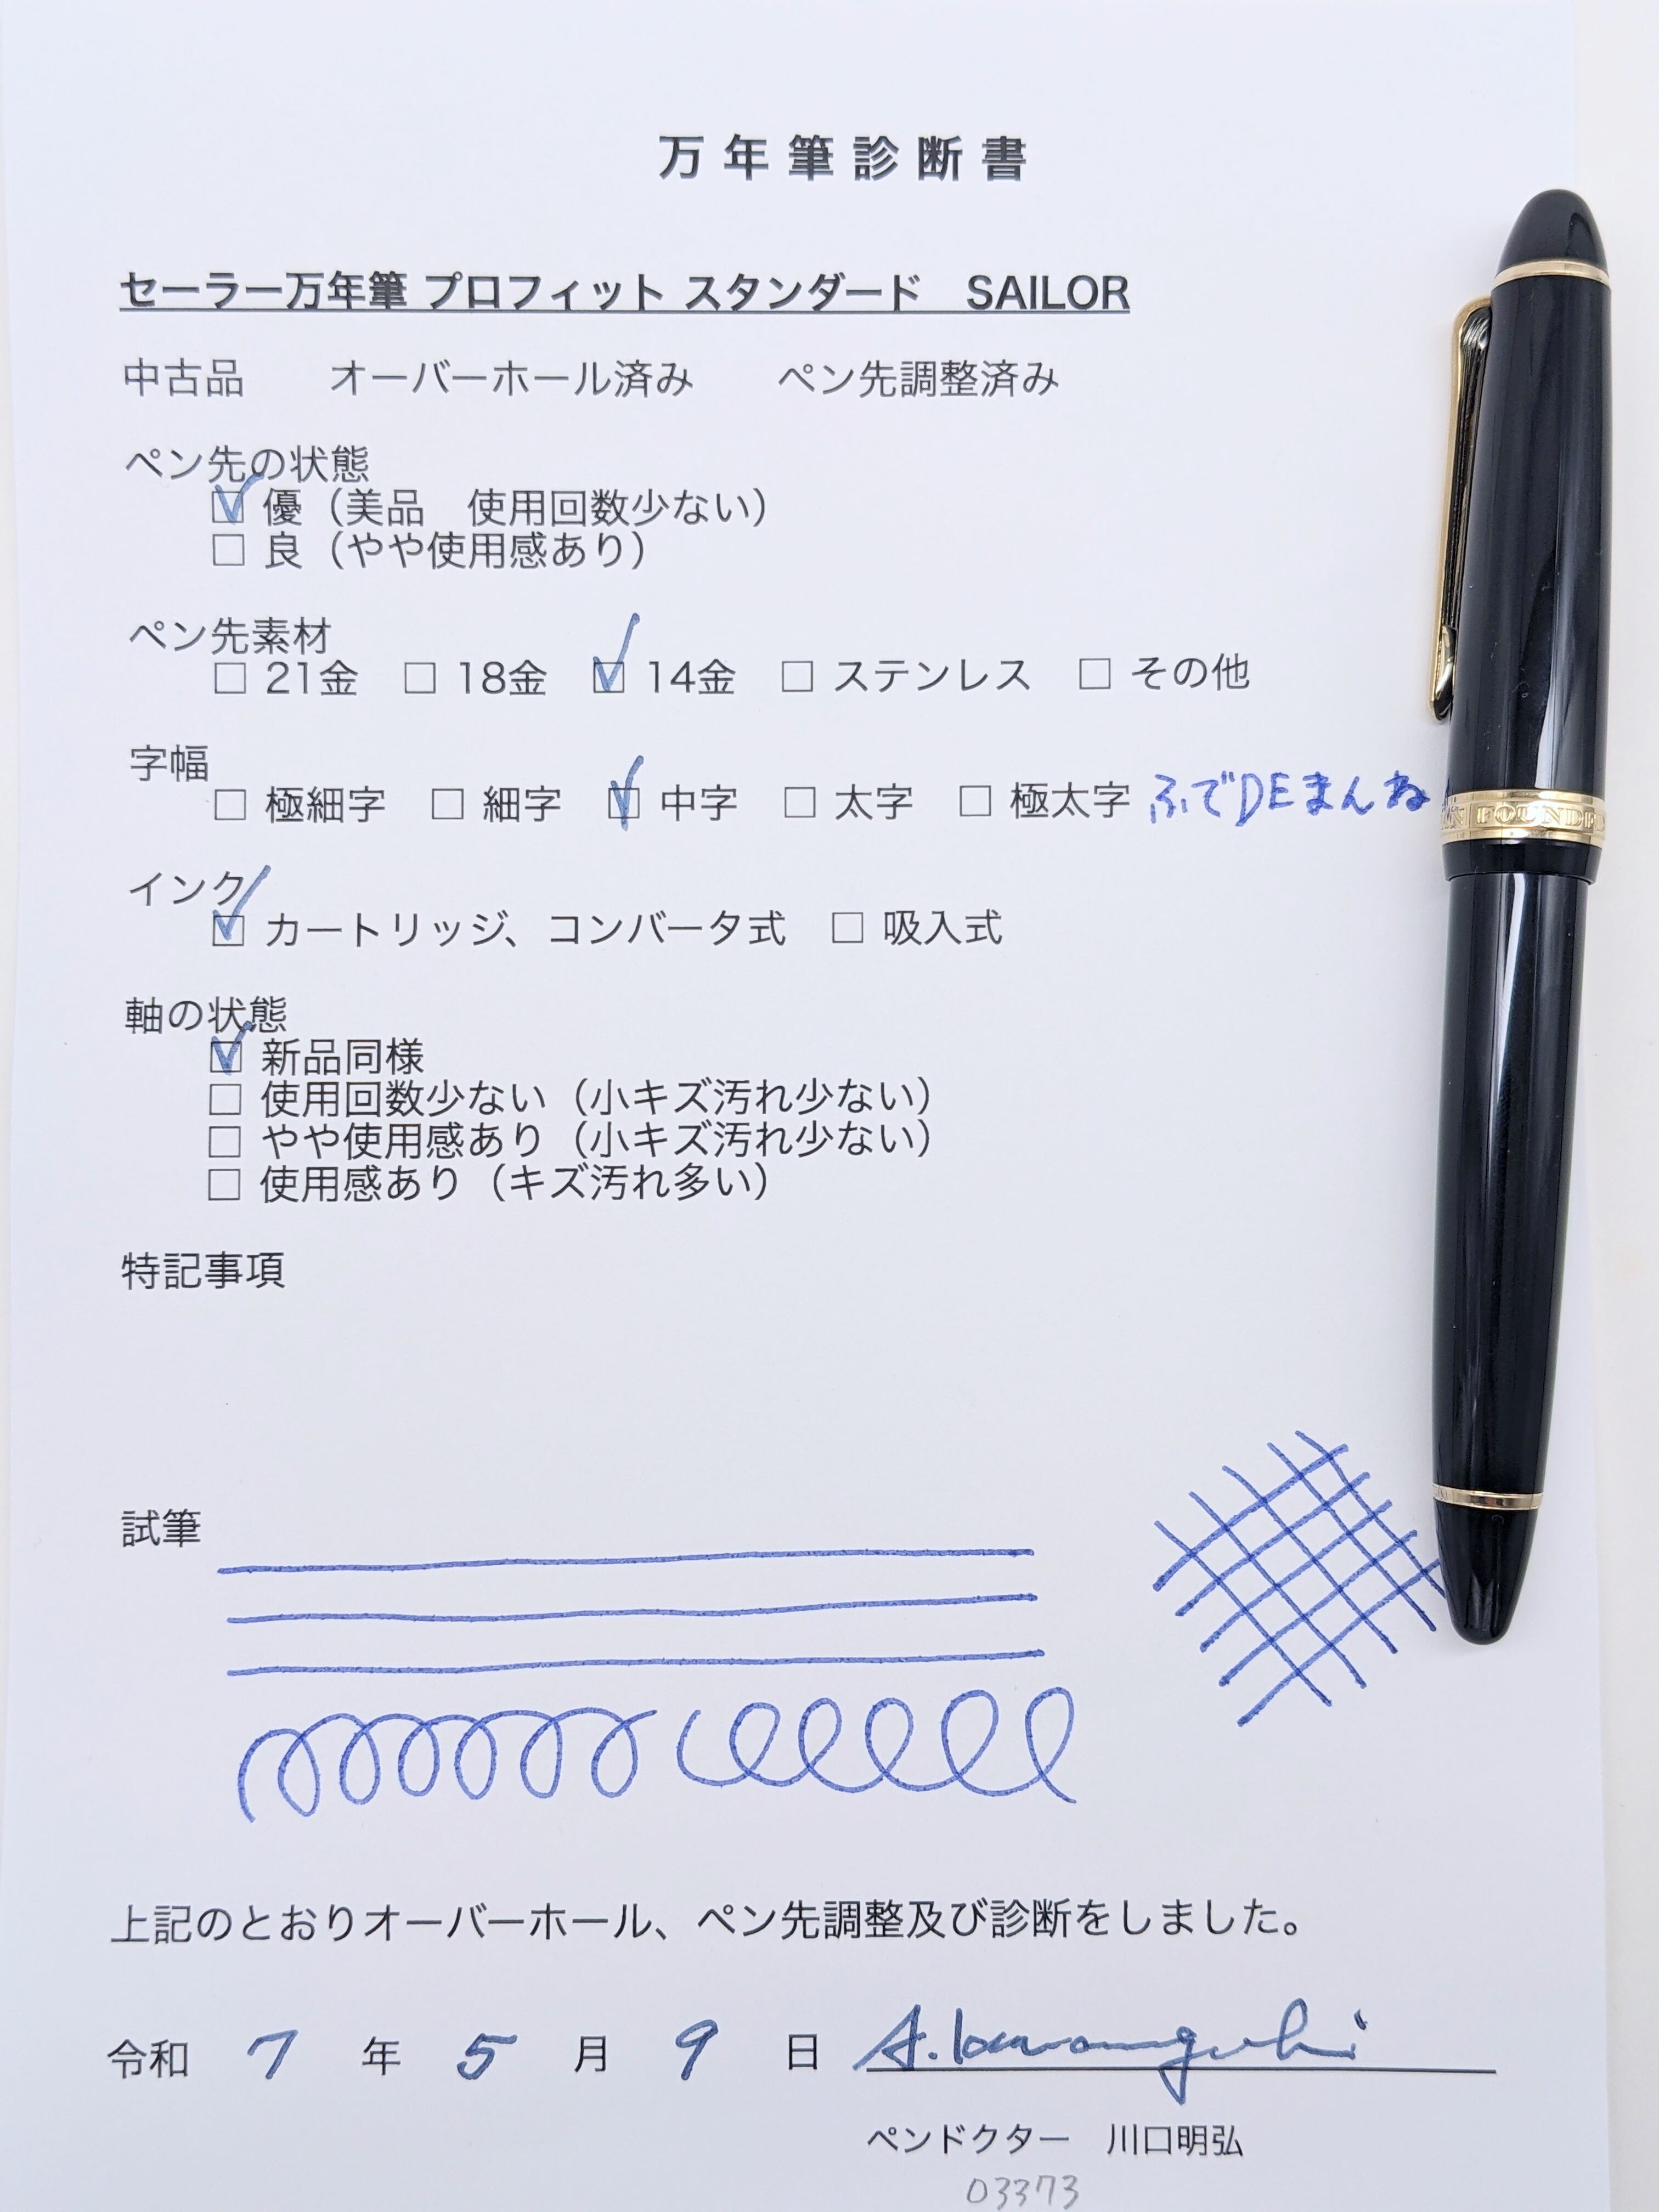 万年筆診断書
セーラー万年筆 プロフィット スタンダード　SAILOR
中古品　　オーバーホール済み　　ペン先調整済み
ペン先の状態
☑ 優（美品　使用回数少ない）
□ 良（やや使用感あり）
ペン先素材
□ 21金　□ 18金　☑ 14金　□ ステンレス　□ その他
字幅
□ 極細字　□ 細字　☑ 中字　□ 太字　□ 極太字 ふでDEまんね
インク
☑ カートリッジ、コンバータ式　□ 吸入式
軸の状態
☑ 新品同様
□ 使用回数少ない（小キズ汚れ少ない）
□ やや使用感あり（小キズ汚れ少ない）
□ 使用感あり（キズ汚れ多い）
特記事項
試筆
上記のとおりオーバーホール、ペン先調整及び診断をしました。
令和　7　年　5　月　9　日　A. Kawaguchi
ペンドクター　川口明弘
03373